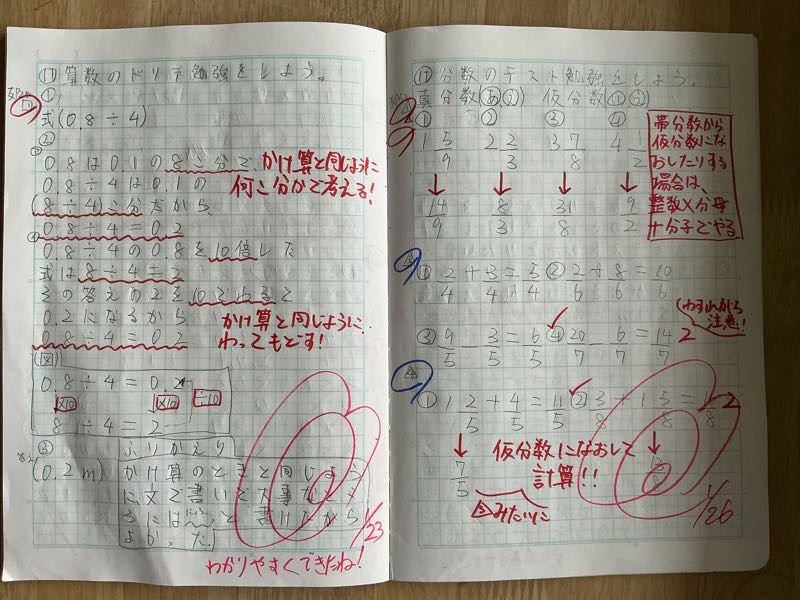 ⑰算数のドリテ勉強をしよう。
①
式(0.8÷4)
②
0.8は0.1の8こ分で、かけ算と同じように
0.8÷4は0.1の 何こ分かで考える!
(8÷4)こ分だから
0.8÷4=0.2
0.8÷4の0.8を10倍した
式は8÷4=2
その答えの2を10でわると
0.2になるから かけ算と同じように、
0.8÷4=0.2 わってもどす!
(図)
0.8÷4=0.2
×10 ×10 ÷10
8÷4=2
③ ふりかえり
(0.2m) かけ算のときと同じよう
に文で書いて大事なとこ
ろには と書けたから
よかった。
1/23
わかりやすくできたね!
⑰分数のテスト勉強をしよう。
真分数(あ,え) 仮分数(い,う)
① ② ③ ④
1 5/9 2 2/3 3 7/8 4 1/2
↓ ↓ ↓ ↓
14/9 8/3 31/8 9/2
帯分数から
仮分数にな
おしたりする
場合は、
整数×分母
+分子でやる
① 2/4+3/4=5/4 ② 2/6+8/6=10/6
わすれがち
注意!
③ 9/5-3/5=6/5 ④ 20/7-6/7=14/7 2
① 1 2/5+4/5=11/5 ② 3/8+1 5/8=16/8 2
↓ ↓
7/5
仮分数になおして
計算!!
③みたいに
1/26